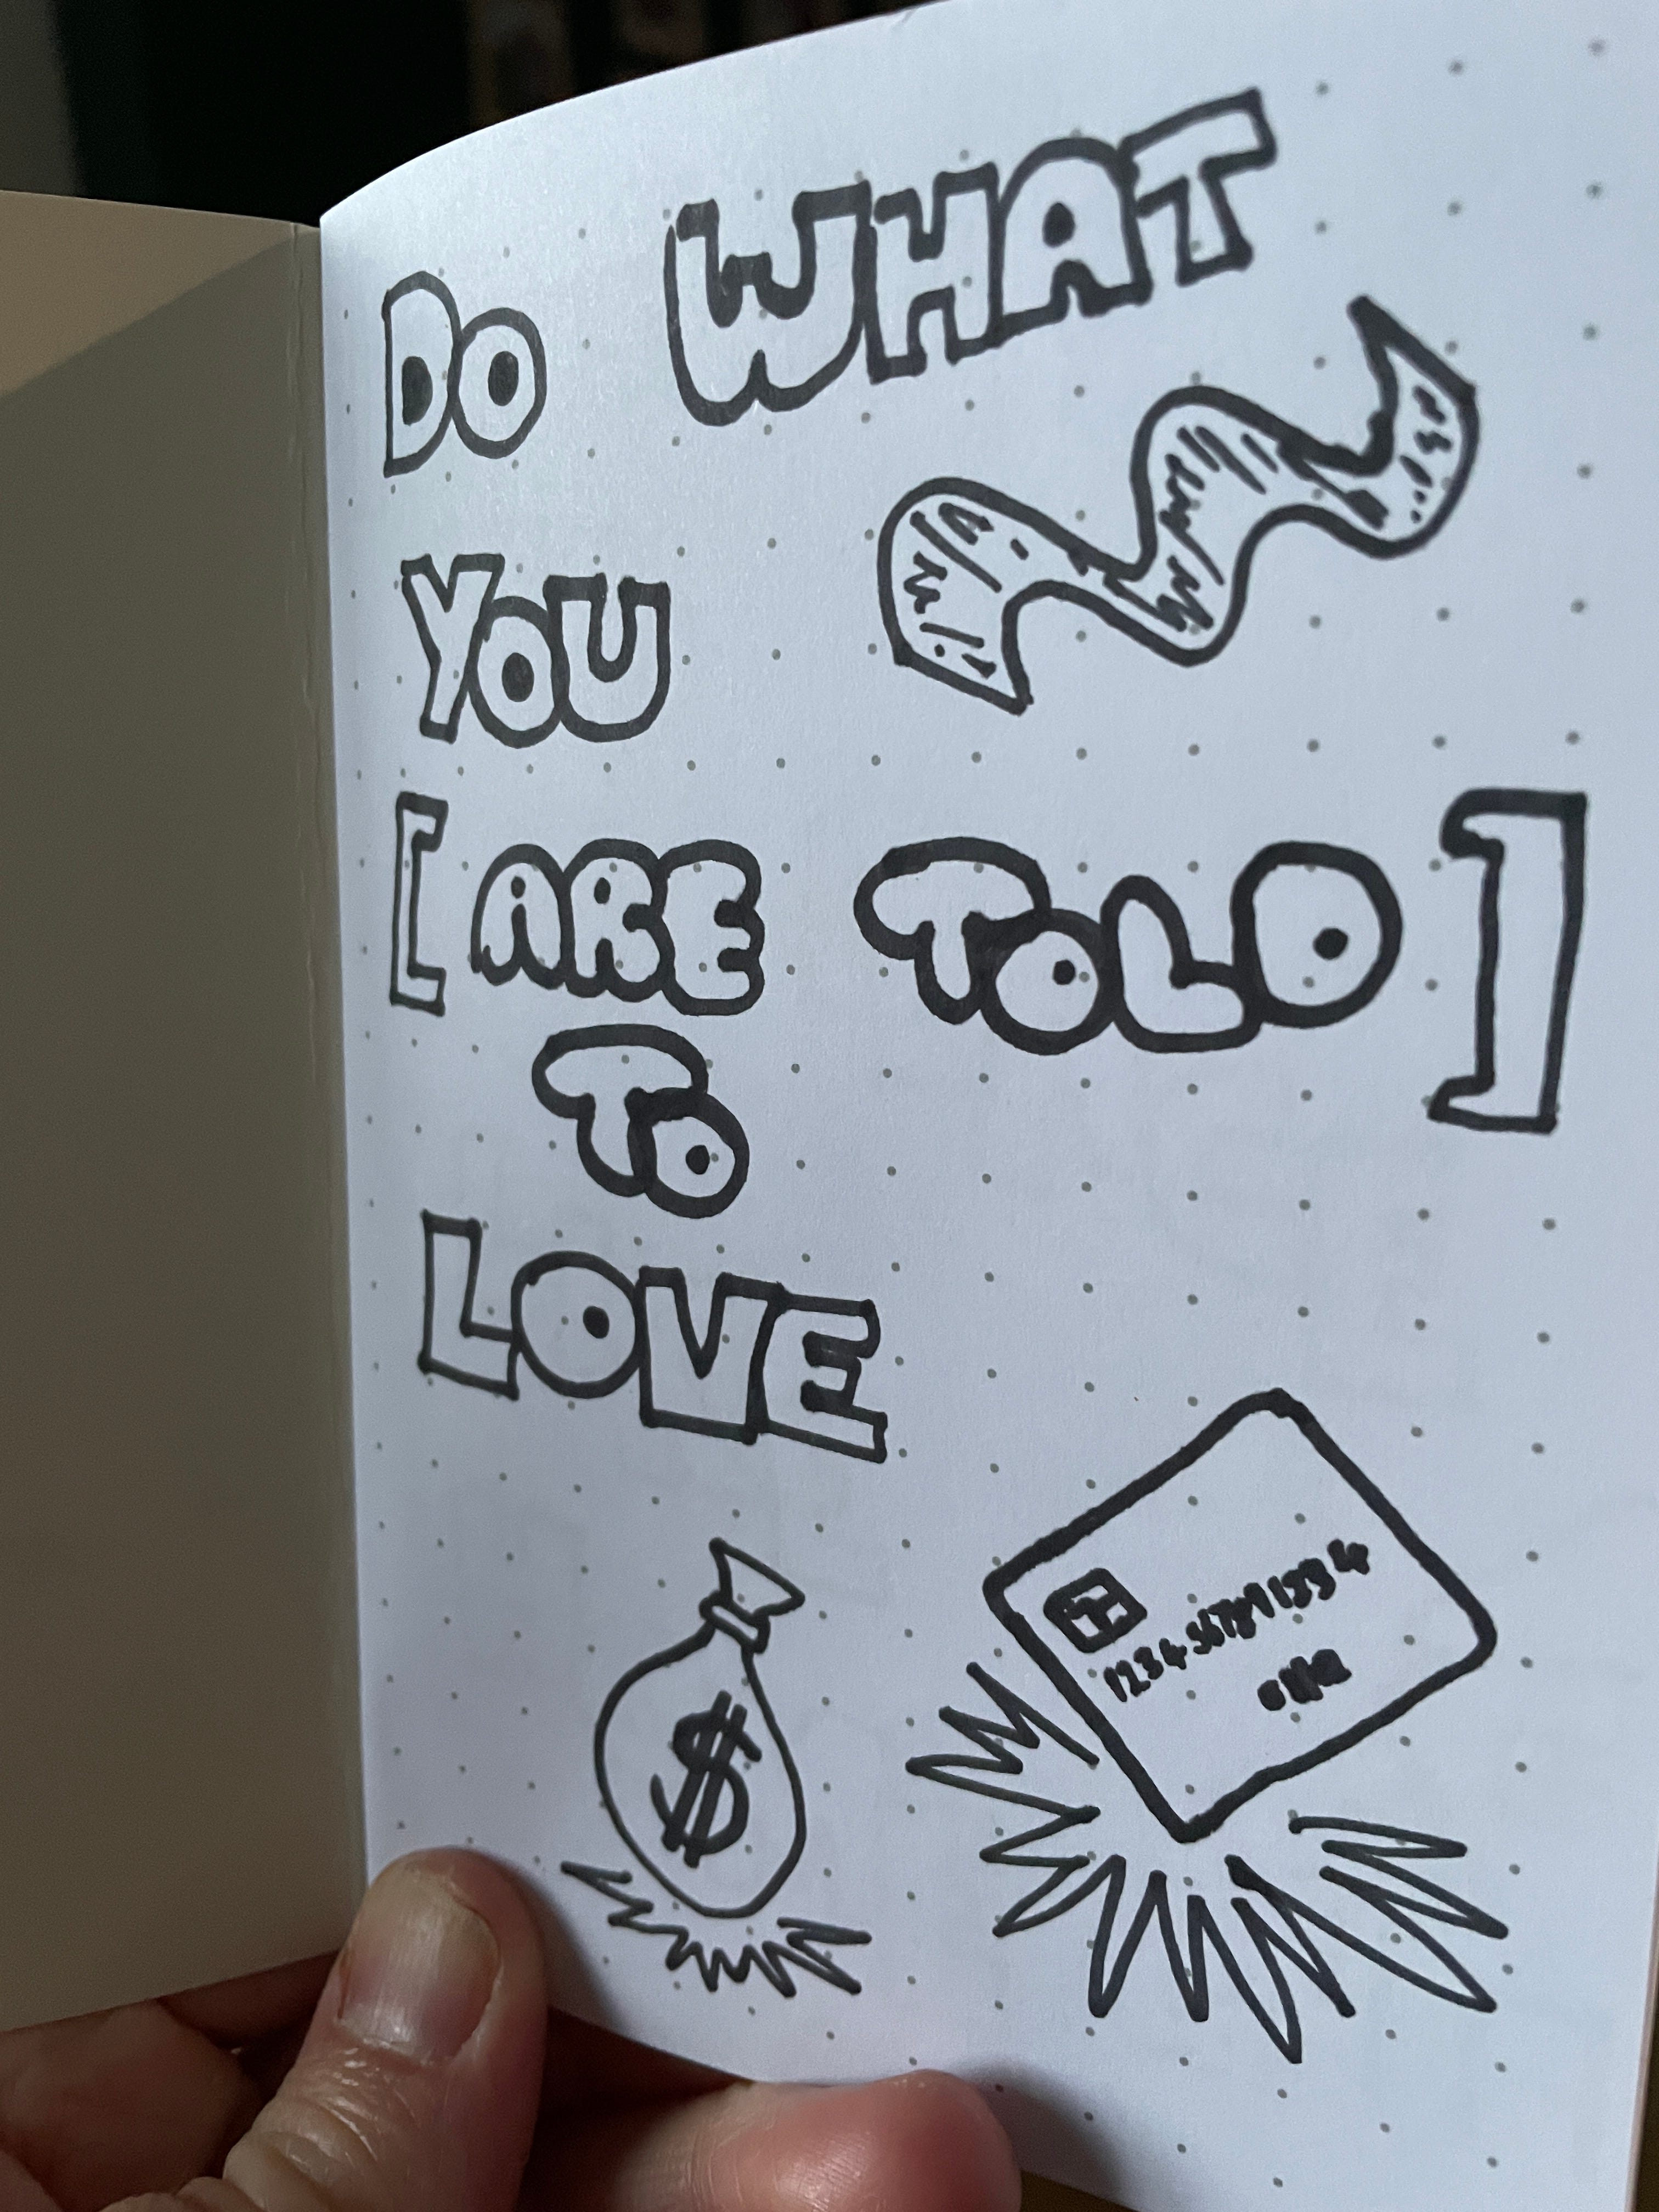 DO WHAT
YOU
[ARE TOLD]
TO
LOVE
$
1234567891234